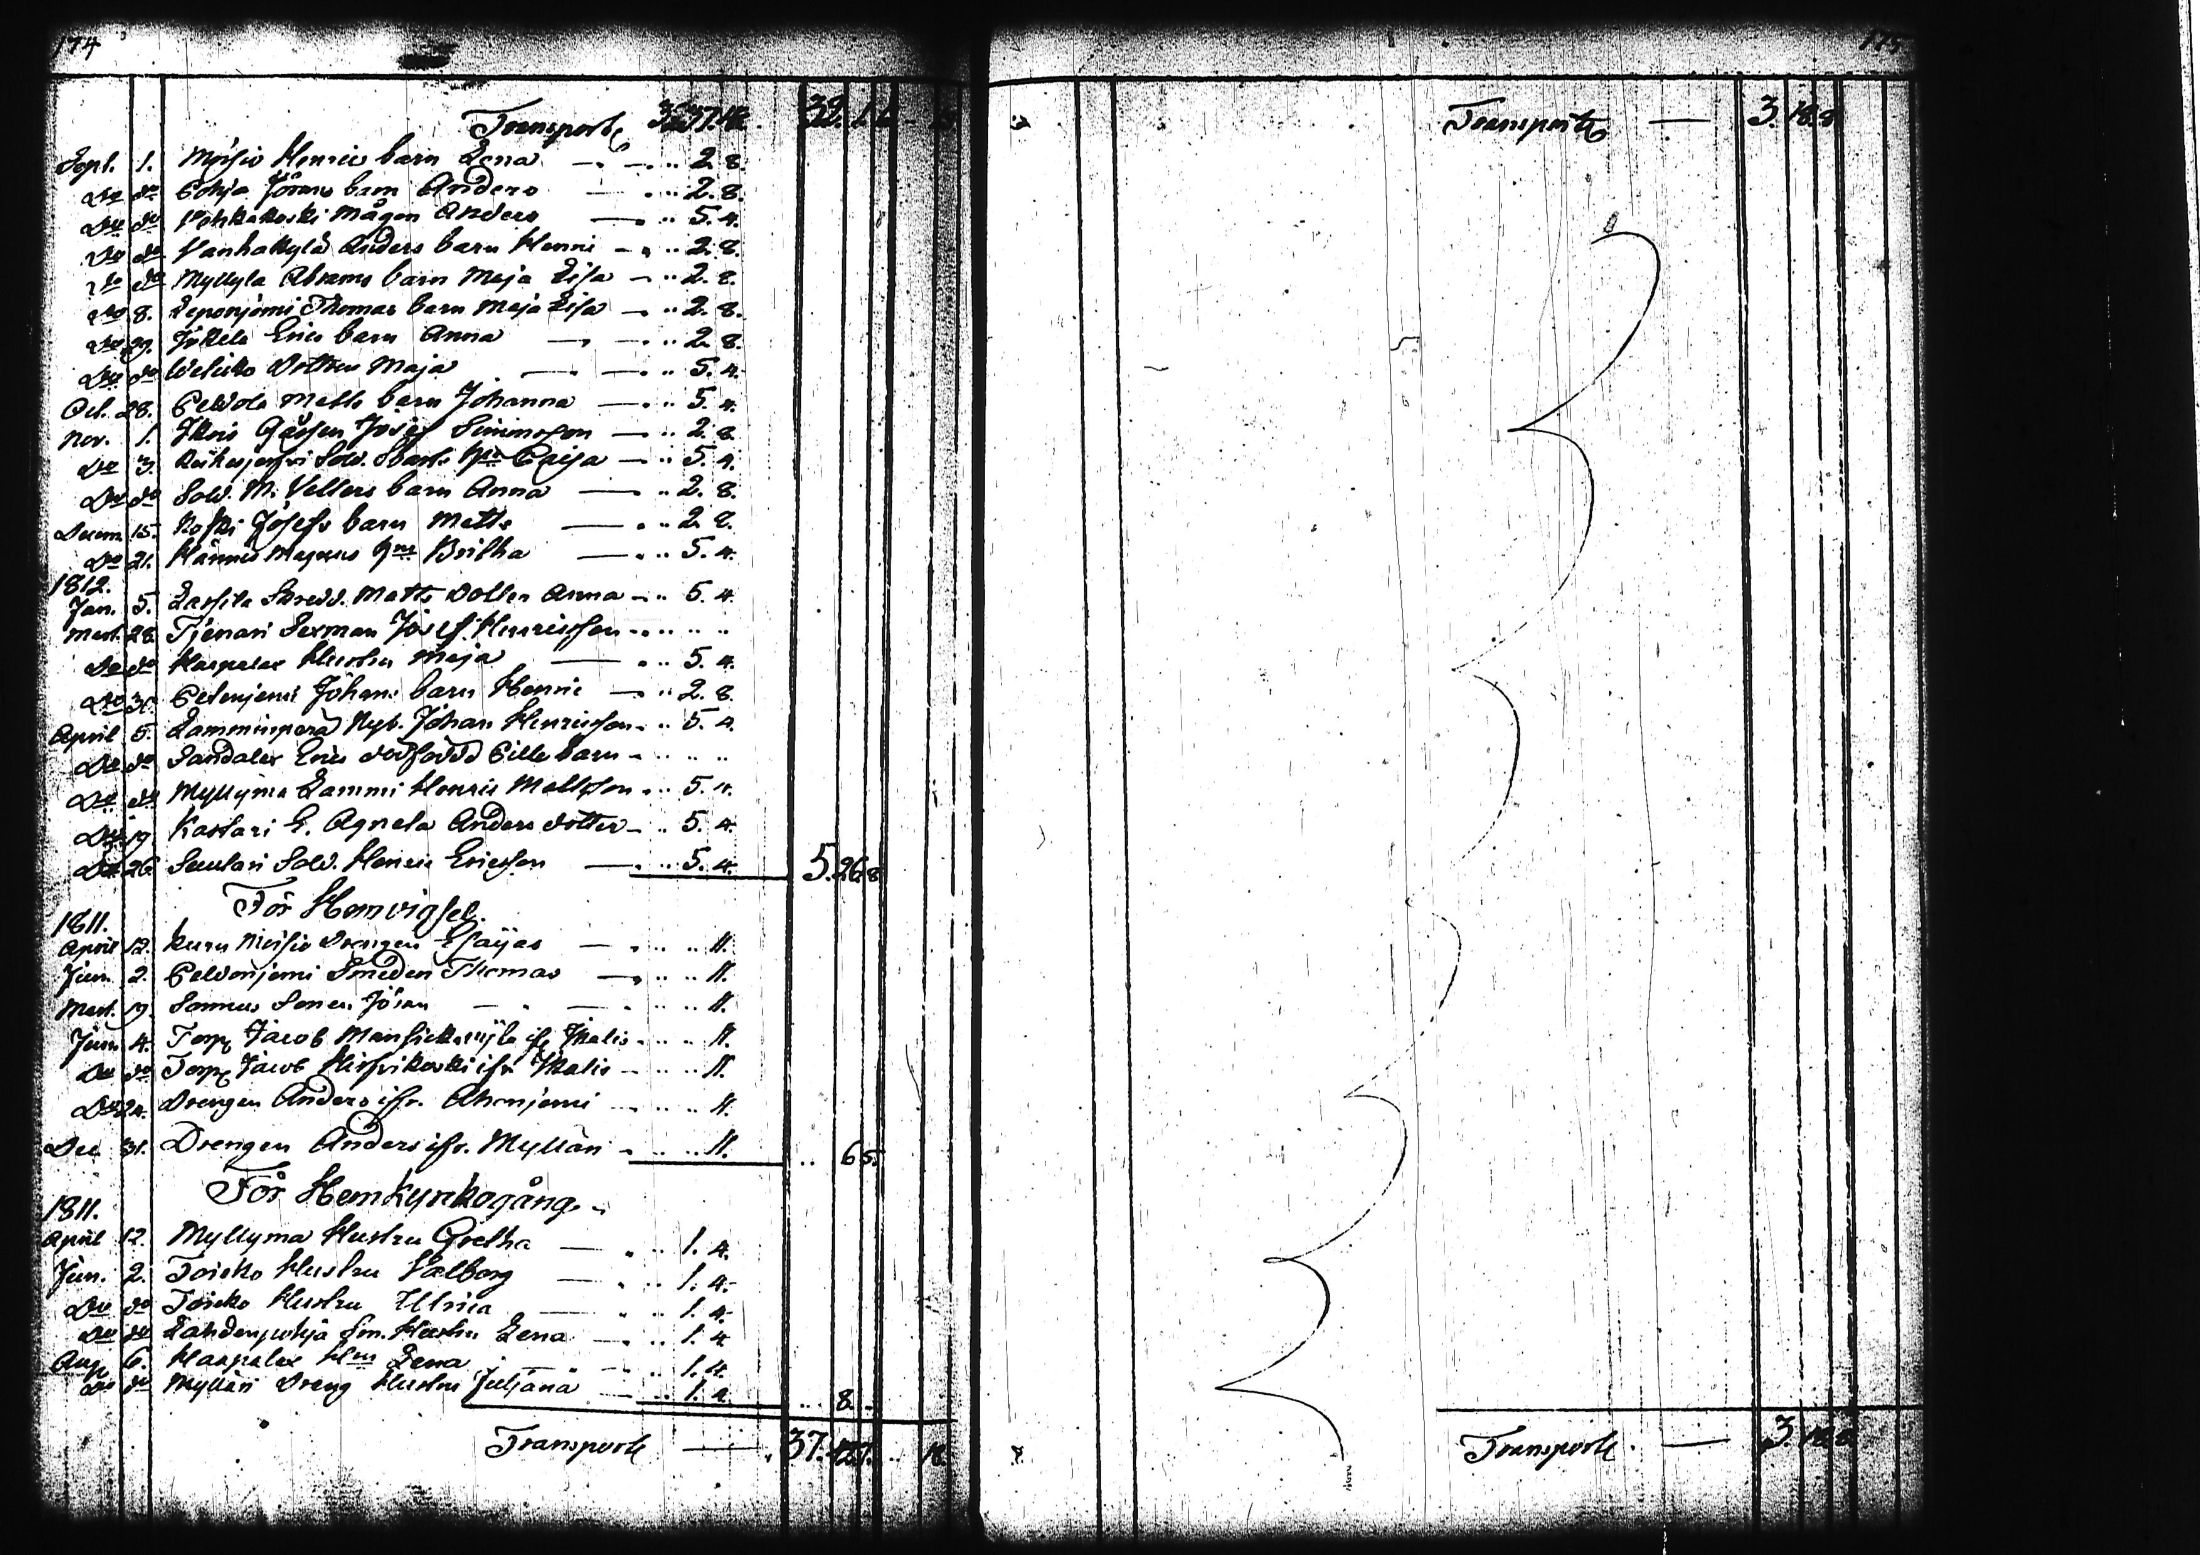 174
Transport 32. 1.
Sept. 1. Moisio Henrics barn Lena 2. 8.
Do do Pohja Jörans barn Anders 2. 8.
Do do Vehkakoski Mågen Anders 5. 4.
Do do Vanhakylä Anders barn Henric 2. 8.
Do do Myllylä Abrams barn Maja Lisa 2. 8.
Do 8. Leponjemi Thomas barn Maja Lisa 2. 8.
Do 29. Jökelä Erics barn Anna 2. 8.
Do do Dottren Maja 5. 4.
Oct. 28. Peldola Matts barn Johanna 5. 4.
Nov. 1. Josef Simonsson 2. 8.
Do 3. Sold. Hu Caisa 5. 4.
Do do Sold. M. Vellers barn Anna 2. 8.
Decem. 15. Koski Josefs barn Matts 2. 8.
Do 21. Hannus Magnus Hu Britha 5. 4.
1812.
Jan. 5. Lassila Skredd. Matts Dotter Anna 5. 4.
Mart. 28. Tjenari Sexman Josef Henricsson
Do do Haapalax Hustru Maja 5. 4.
Do 30. Petenjemi Johans barn Henric 2. 8.
April 5. Lamminperä Nyb. Johan Henricsson 5. 4.
Do do Sandalax Erics dödfödd Pille barn
Do do Myllymä Lammi Henric Mattsson 5. 4.
Do 19. Kastari E. Agneta Anders dotter 5. 4.
Do 26. Sold. Henric Ericsson 5. 4. 5. 26. 8
För Hemvigsel.
1811.
April 12. Kuru Moisio Drengen Esaijas 11.
Jun. 2. Peldonjemi Smeden Thomas 11.
Mart. 19. Sonnus Sonen Jöran 11.
Jun. 4. Torp. Jacob Mansickamylä ifr. Ikalis 11.
Do do Torp. Jacob Hirsikoski ifr. Ikalis 11.
Do 24. Drengen Anders ifr. Ahonjemi 11.
Dec. 31. Drengen Anders ifr. Mylläri 11. 6 5.
För Hemkyrkogång.
1811.
April 12. Myllyma Hustru Gretha 1. 4.
Jun. 2. Toisko Hustru Valborg 1. 4.
Do do Toisko Hustru Ulrica 1. 4.
Do do Lahdenpohja Sm. Hustru Lena 1. 4
Aug. 6. Haapalax Hu Lena 1. 4.
Do do Myllari Dreng Hustru Juljana 1. 4. 8.
Transport 37. 18.
175
Transport 3. 18. 8
Transport 3. 18. 8